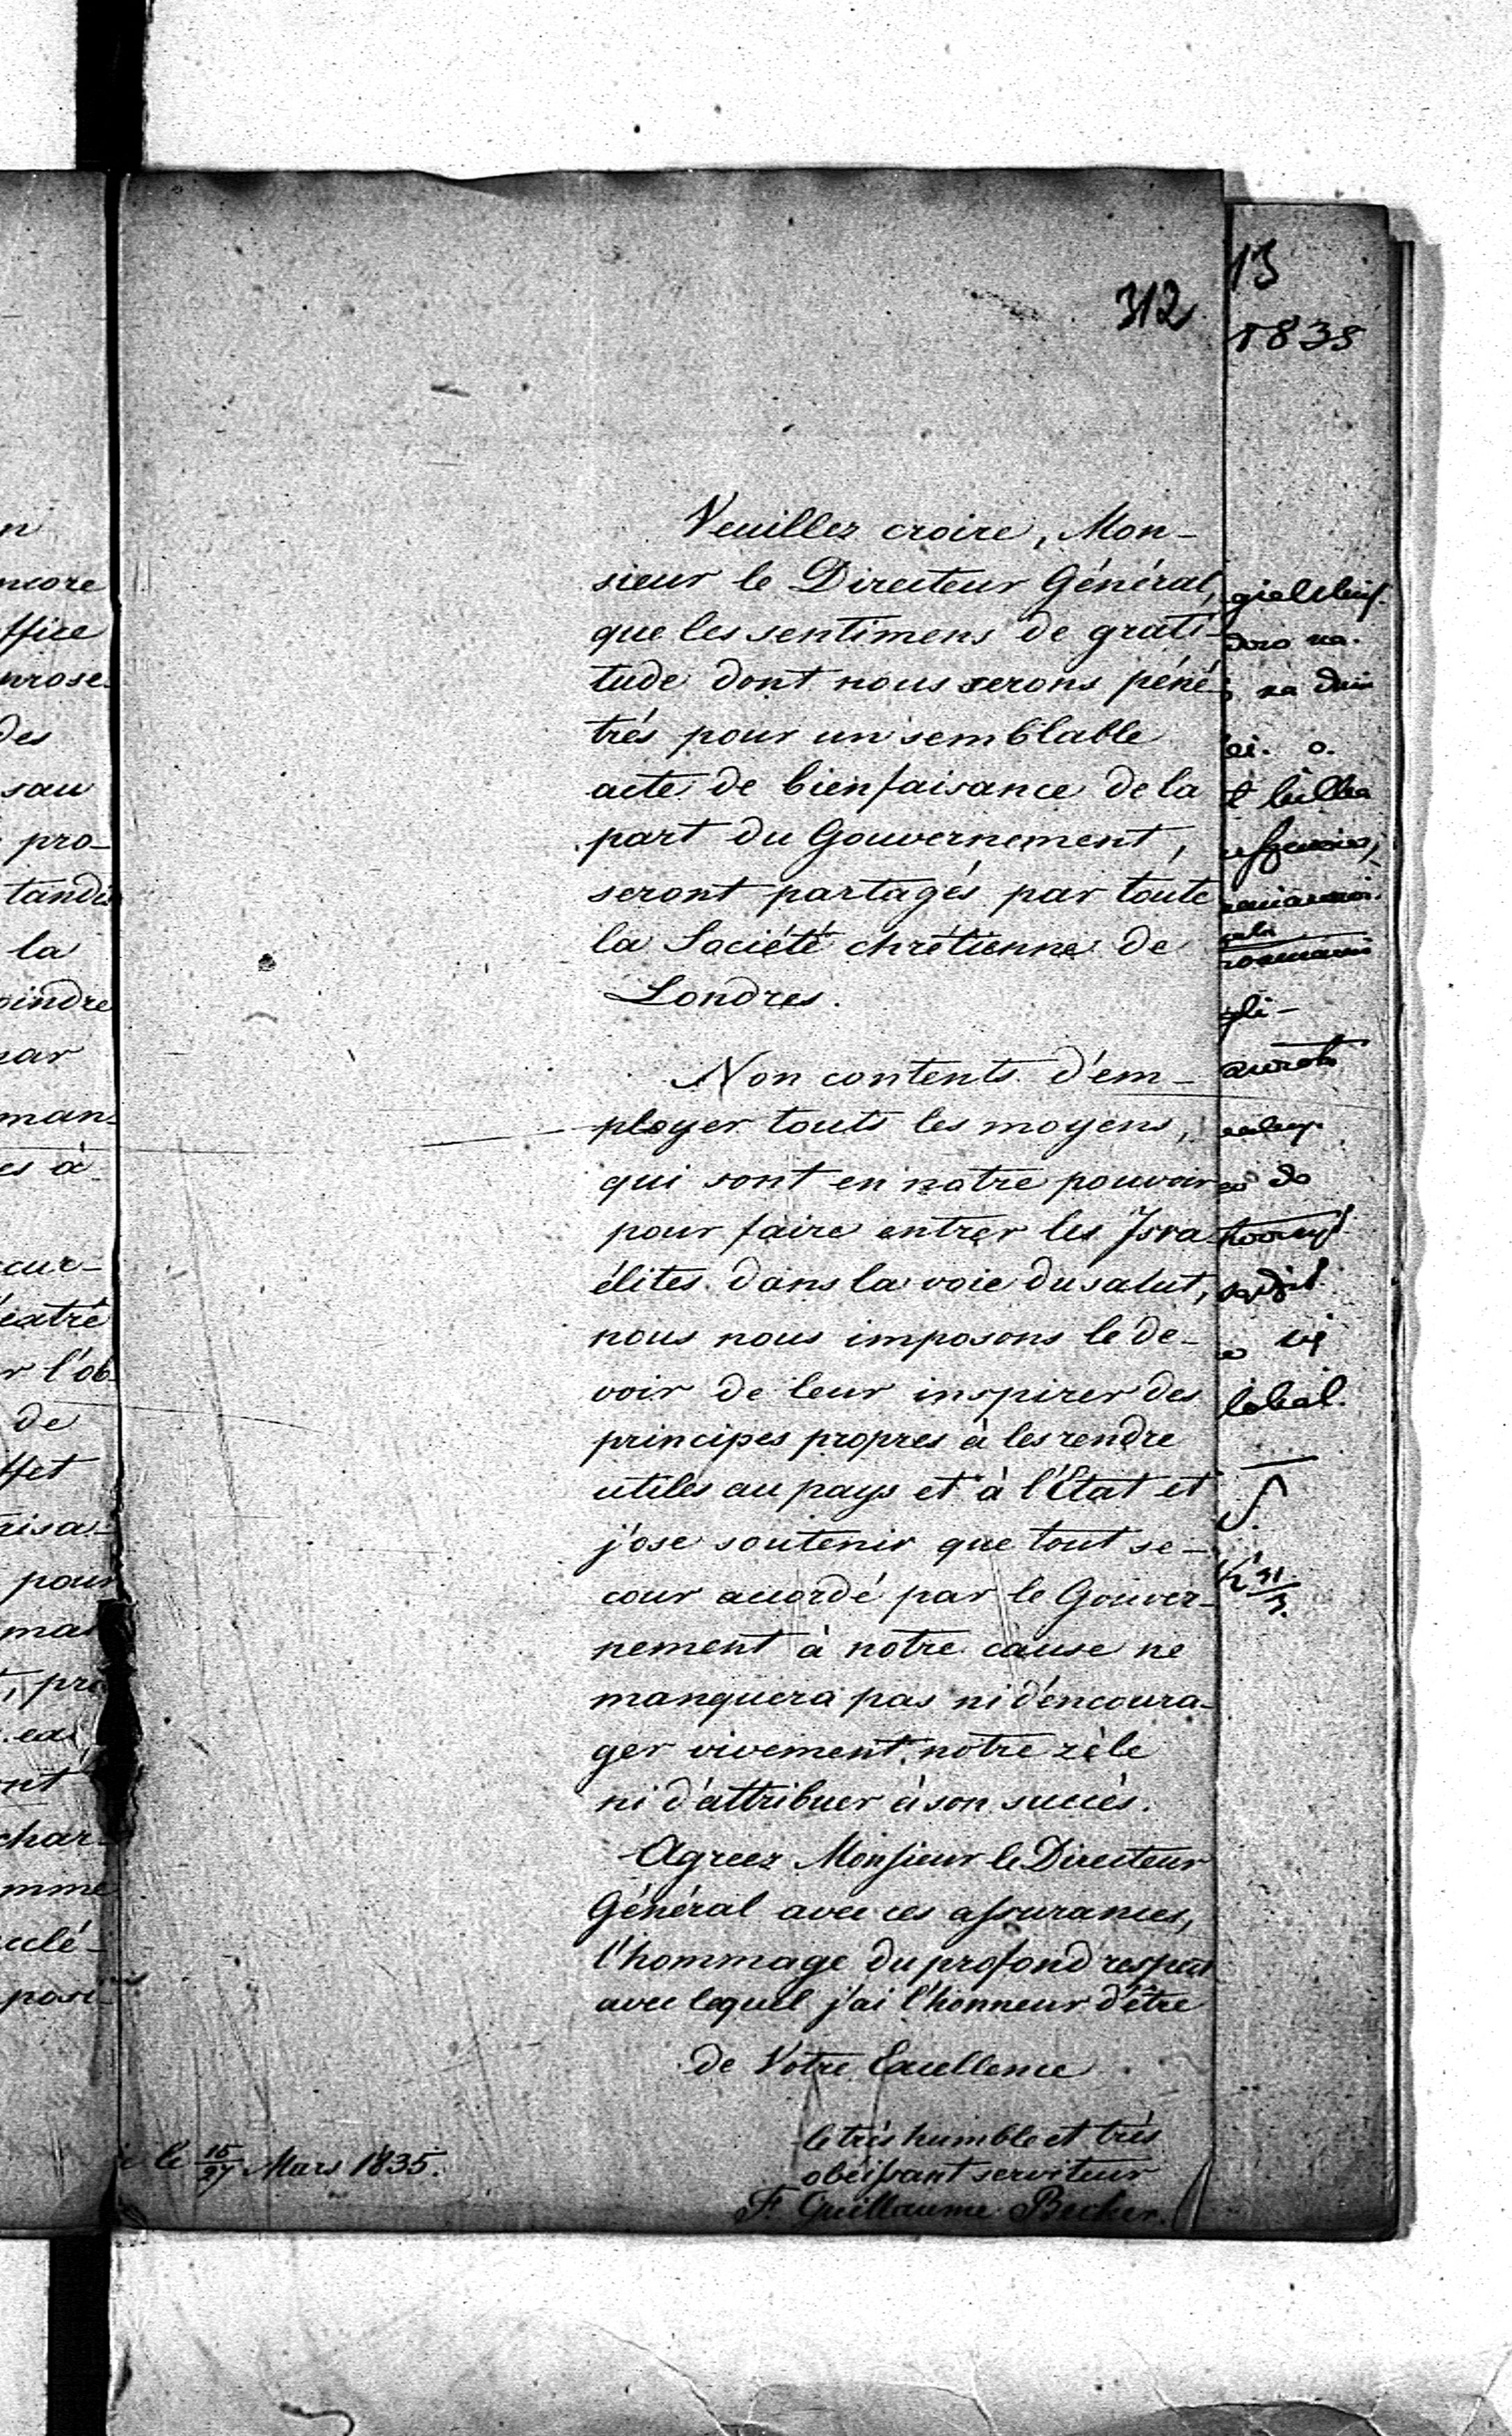 312
Veuillez croire, Mon-
sieur le Directeur Général,
que les sentimens de grati-
tude dont nous serons péné-
trés pour un semblable
acte de bienfaisance de la
part du Gouvernement,
seront partagés par toute
la Société chrétienne de
Londres.
Non contents d'em-
ployer touts les moyens,
qui sont en notre pouvoir
pour faire entrer les Isra-
élites dans la voie du salut,
nous nous imposons le de-
voir de leur inspirer des
principes propres à les rendre
utiles au pays et à l'État et
j'ose soutenir que tout se-
cour accordé par le Gouver-
nement à notre cause ne
manquera pas ni d'encoura-
ger vivement notre zèle
ni d'attribuer à son succès.
Agreez Monsieur le Directeur
Général avec ces assurances,
l'hommage du profond respect
avec lequel j'ai l'honneur d'être
de Votre Excellence
le très humble et très
obéissant serviteur
F. Guillaume Becker.
le 15/27 Mars 1835.
ncore
ffice
des
pro-
tandis
la
oindre
par
man-
es à
r l'ob-
de
ffet
pour
char-
mme
13
1835